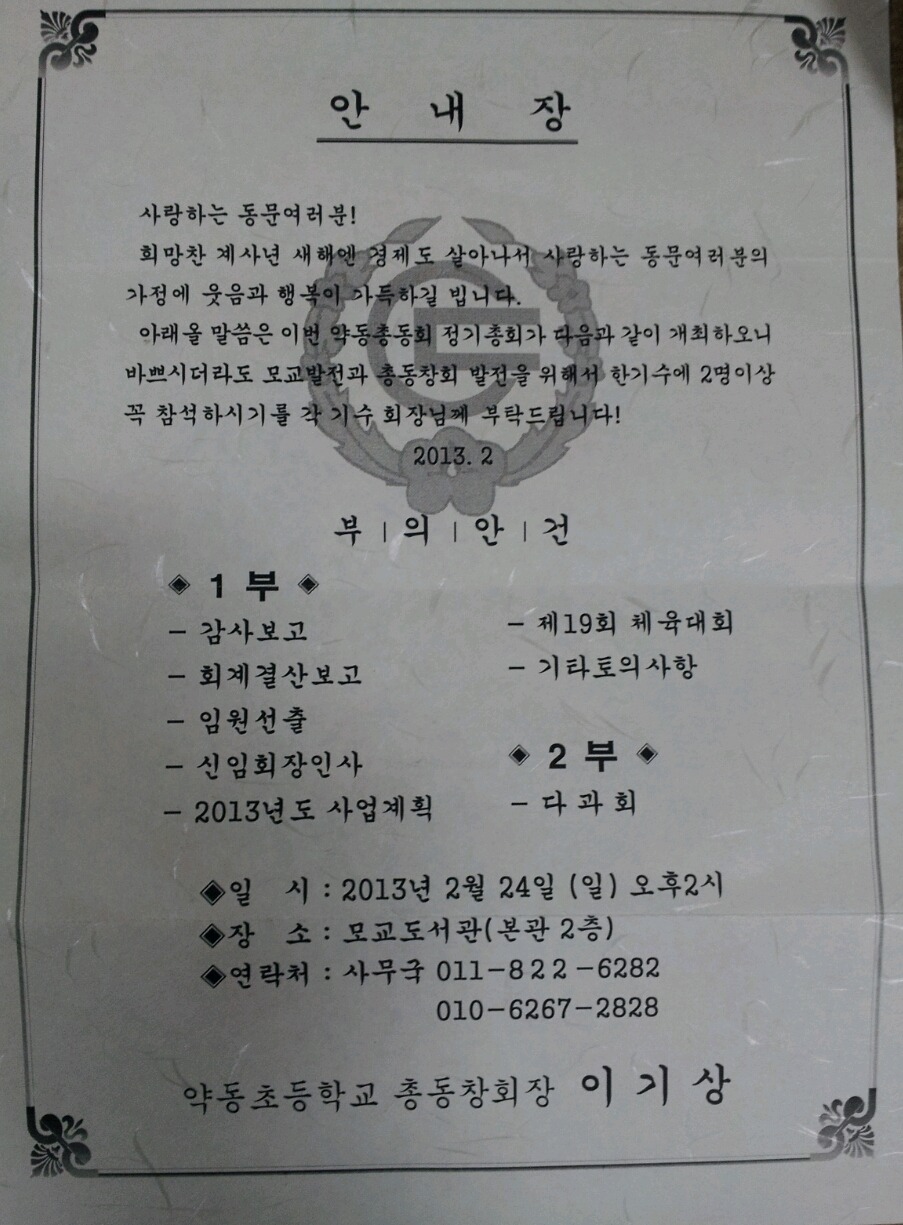 안 내 장
사랑하는 동문여러분!
희망찬 계사년 새해엔 경제도 살아나서 사랑하는 동문여러분의
가정에 웃음과 행복이 가득하길 빕니다.
아래올 말씀은 이번 약동총동회 정기총회가 다음과 같이 개최하오니
바쁘시더라도 모교발전과 총동창회 발전을 위해서 한기수에 2명이상
꼭 참석하시기를 각 기수 회장님께 부탁드립니다!
2013. 2
부 | 의 | 안 | 건
◈ 1 부 ◈
- 감사보고
- 회계결산보고
- 임원선출
- 신임회장인사
- 2013년도 사업계획
- 제19회 체육대회
- 기타토의사항
◈ 2 부 ◈
- 다 과 회
◈일 시 : 2013년 2월 24일 (일) 오후2시
◈장 소 : 모교도서관(본관 2층)
◈연락처 : 사무국 011-822-6282
010-6267-2828
약동초등학교 총동창회장 이 기 상